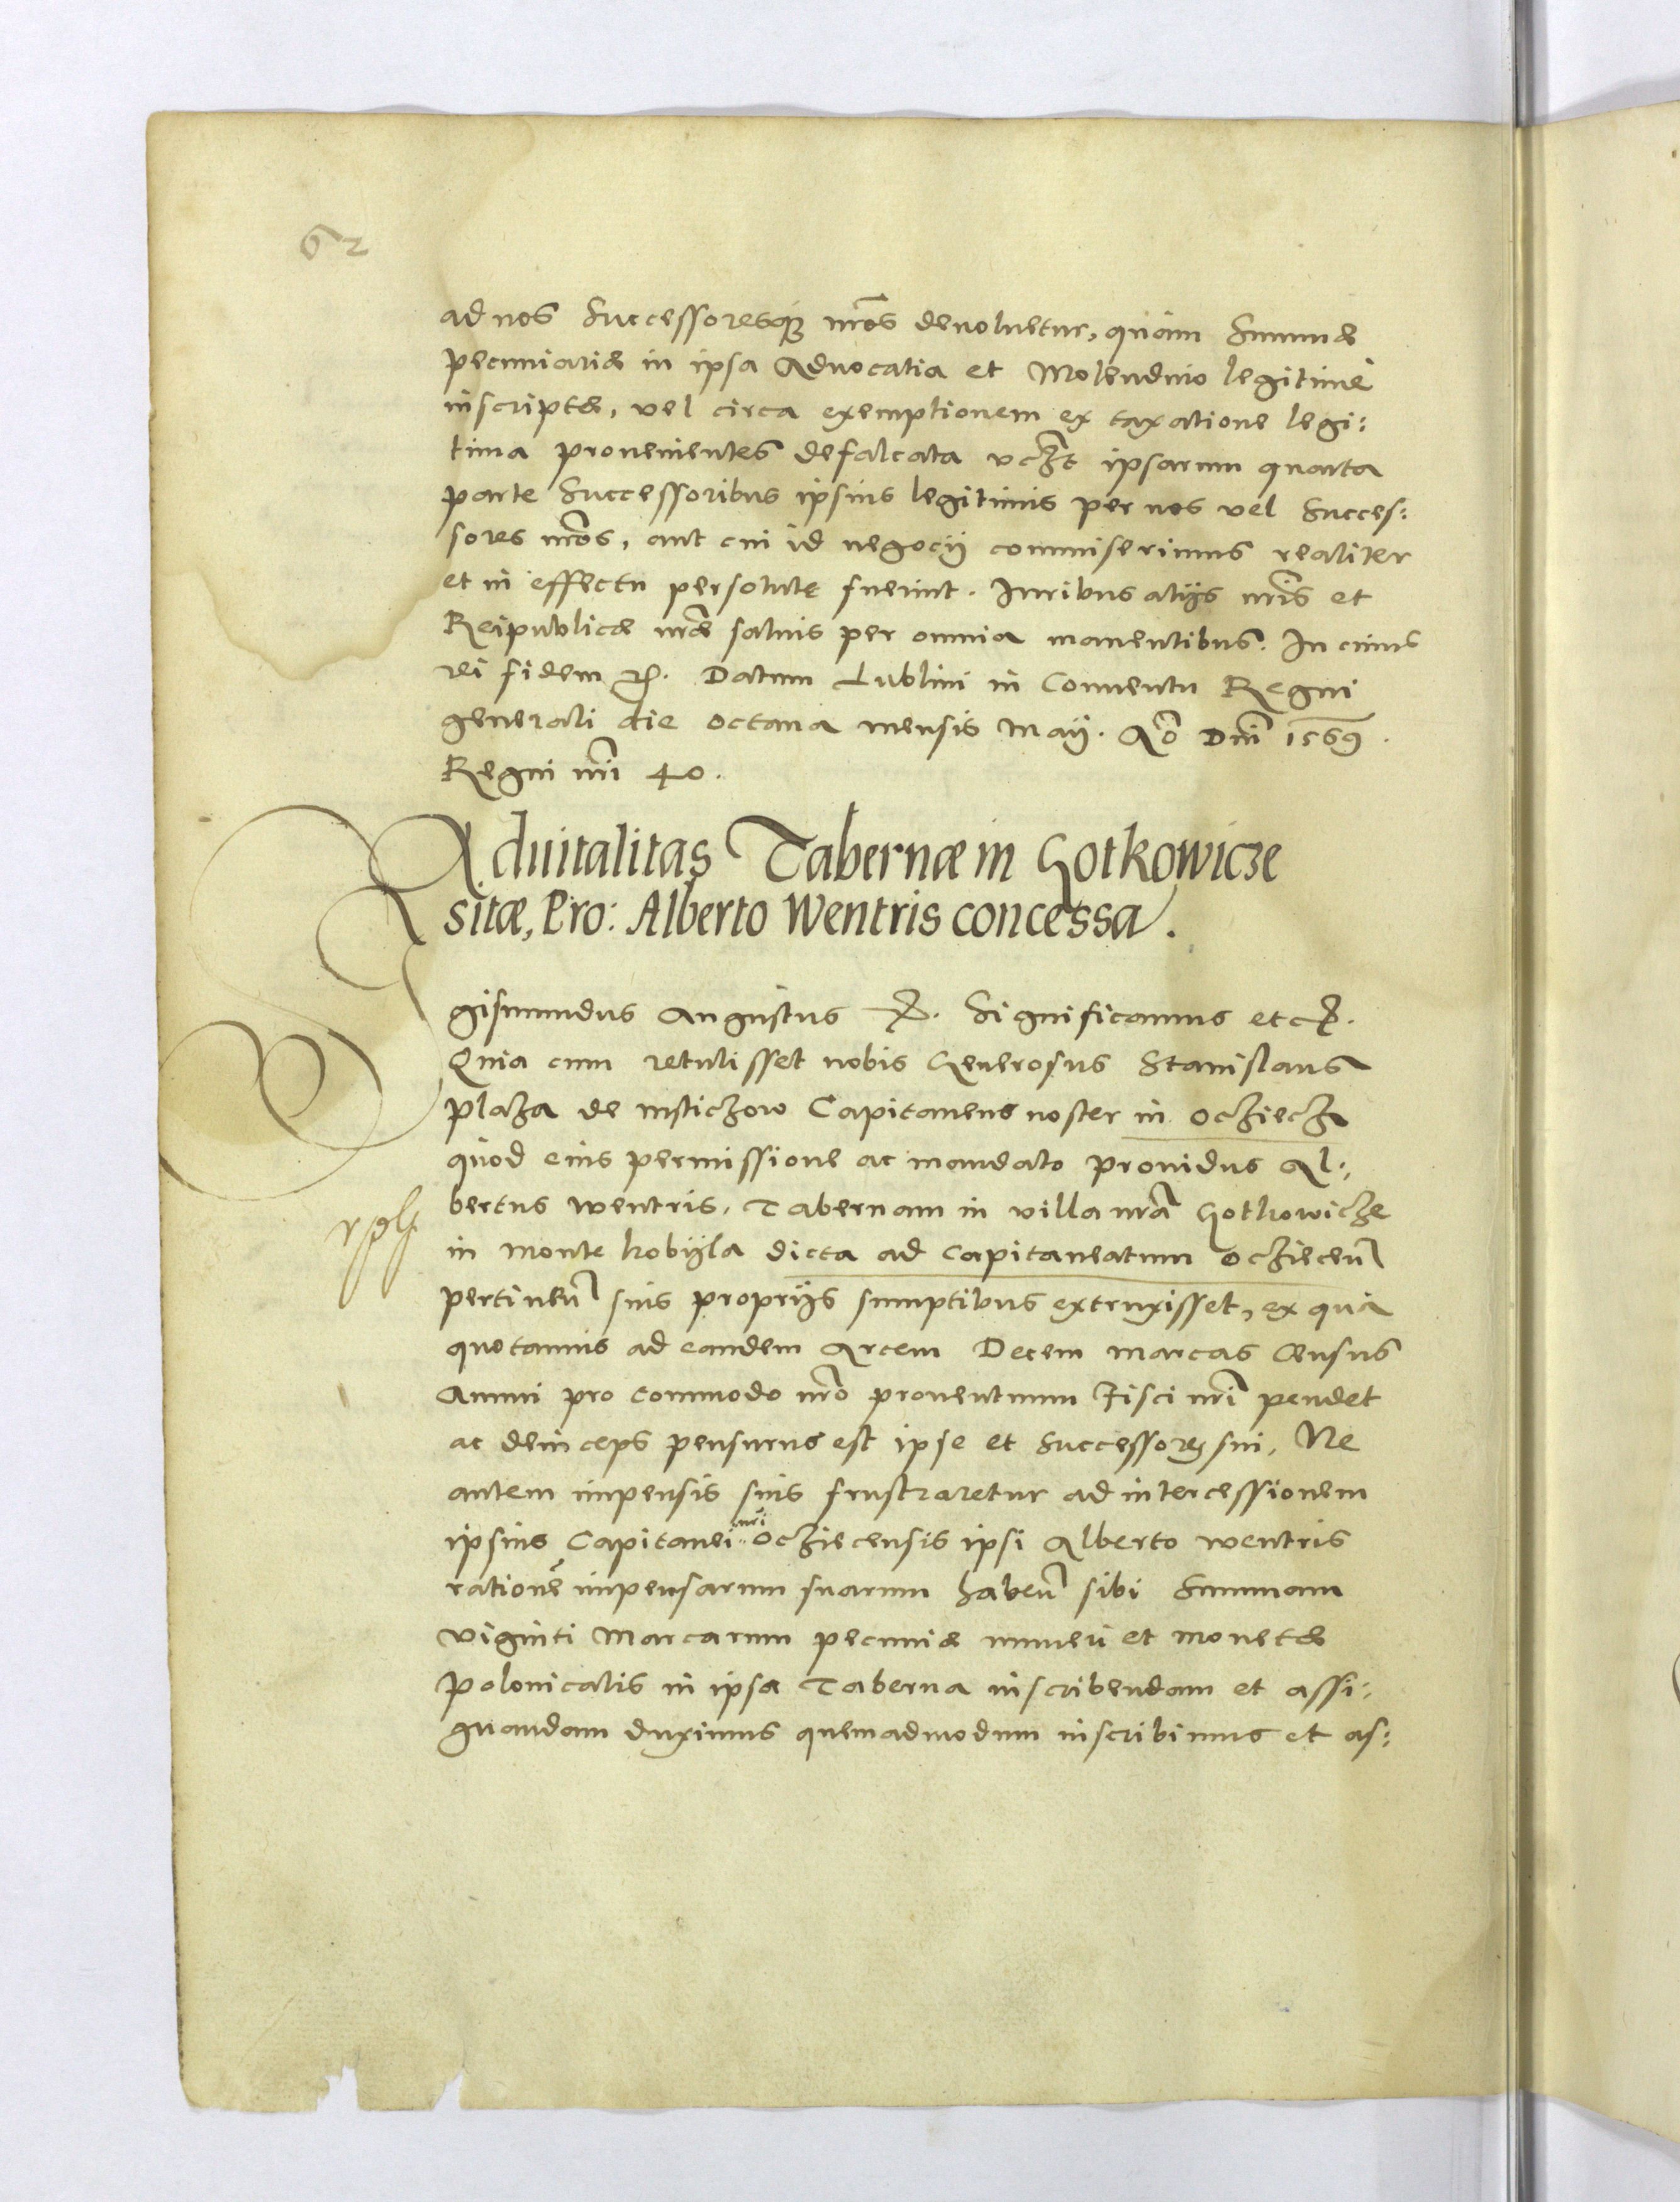 62
ad nos Successoresq3 nr̃os deuoluetur, quàm Summæ
pecuniariæ in ipsa Aduocatia et Molendino legitimè
inscriptæ, vel circa exemptionem ex taxatione legi:
tima prouenientes defalcata ipsarum quarta
parte Successoribus ipsius legitimis per nos vel Succes:
sores nr̃os, aut cui id negocij commiserimus realiter
et in effectu persolutę fuerint. Iuribus alijs nr̃is et
Reipublicæ nr̃æ saluis per omnia manentibus. In cuius
rei fidem Datum Lublini in Conuentu Regni
generali die octaua mensis Maij. Ao Dni 1569.
Regni nr̃i 40.
Aduitalitas Tabernæ in Gotkowicze
sitæ, Pro: Alberto Wentris concessa.
gismundus Augustus Significamus etc
Quia cum retulisset nobis Generosus Stanislaus
plaza de mstichow Capitaneus noster in ocziecz
quod eius permissione ac mandato prouidus Al:
bertus wentris, Tabernam in villa nr̃a Gotkowicze
in monte kobijla dicta ad Capitaneatum oczieceñ
pertineñ suis proprijs sumptibus extruxisset, ex qua
quotannis ad eandem Arcem Decem marcas Census
Annui pro commodo nr̃o prouentuum Fisci nr̃i pendet
ac deinceps pensurus est ipse et Successores sui, Ne
autem impensis suis frustraretur ad intercessionem
ipsius Capitanei nr̃i ocziecensis ipsi Alberto wentris
rationẽ impensarum suarum habeñ sibi Summam
viginti Marcarum pecuniæ numeri et monetæ
polonicalis in ipsa Taberna inscribendam et assi:
gnandam duximus quemadmodum inscribimus et as: